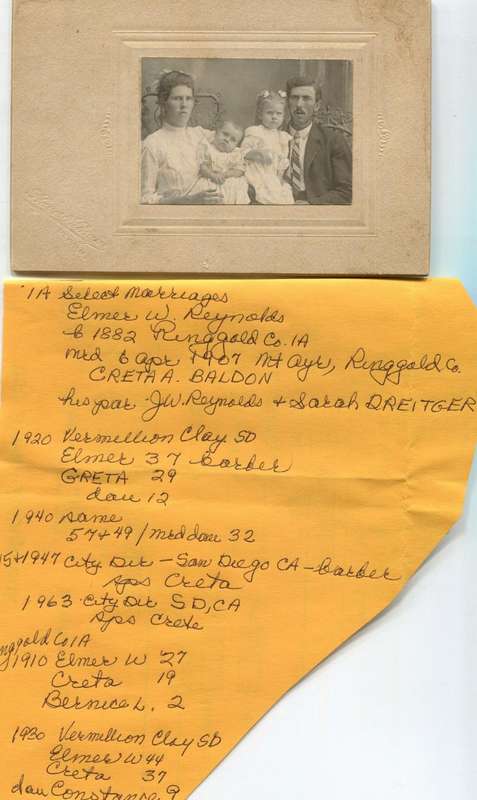 IA Select Marriages
Elmer W. Reynolds
b 1882 Ringgold Co. IA
mrd 6 apr 1907 Mt Ayr, Ringgold Co.
CRETA A. BALDON
his par - J.W. Reynolds + Sarah DREITGER
1920 Vermillion Clay SD
Elmer 37 barber
GRETA 29
dau 12
1940 same
57+49 / mrd dau 32
5+1947 City Dir - San Diego CA - barber
sps Creta
1963 City Dir SD, CA
sps Crete
nggold Co IA
1910 Elmer W 27
Creta 19
Bernice L. 2
1930 Vermillion Clay SD
Elmer W 44
Creta 37
dau Constance 9